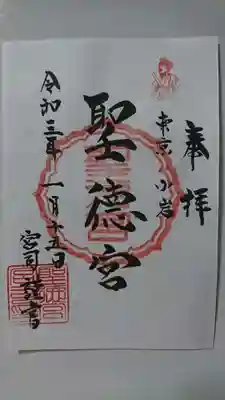 奉拝
東京 小岩
聖德宮
令和三年 一月十五日
宮司謹書